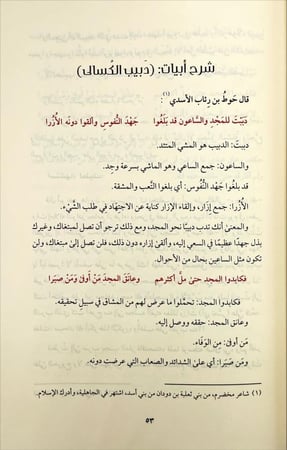 شرح أبيات: (دَبيب الكُسالى)
قال حَوطُ بن رئاب الأسدي(١):
دَبَبْتَ للمَجْدِ والسَّاعون قد بَلَغُوا جَهْدَ النُّفوسِ وألقَوا دونَه الأُزُرا
دببتَ: الدبيب هو المشي المتئد.
والساعون: جمع الساعي وهو الماشي بسرعة وجِد.
قد بلغُوا جَهْدَ النُّفُوس: أي بلغوا التَّعب والمشقة.
الأُزُرا: جمع إزار، وإلقاء الإزار كناية عن الاجتهاد في طلب الشَّيء.
والمعنى أنك تدب دبيبًا نحو المجد، ومع ذلك ترجو أن تصل لمبتغاك، وغيرك
بذل جهدًا عظيمًا في السعي إليه، وألقى إزاره دون ذلك، فلن تصل إلى مبتغاك، ولن
تكون مثل الساعين بحال من الأحوال.
فكابدوا المجدَ حتى ملَّ أكثرهم وعانَق المجدَ مَنْ أوفى وَمَنْ صَبَرا
فكابدوا المجد: تحمَّلوا ما عرض لهم من المشاق في سبيل تحقيقه.
وعانق المجد: حققه ووصل إليه.
مَن أوفى: مِن الوفاء.
ومَن صَبَرا: أي على الشدائد والصعاب التي عرضت دونه.
(١) شاعر مخضرم، من بني ثعلبة بن دودان من بني أسد، اشتهر في الجاهلية، وأدرك الإسلام.
٥٣